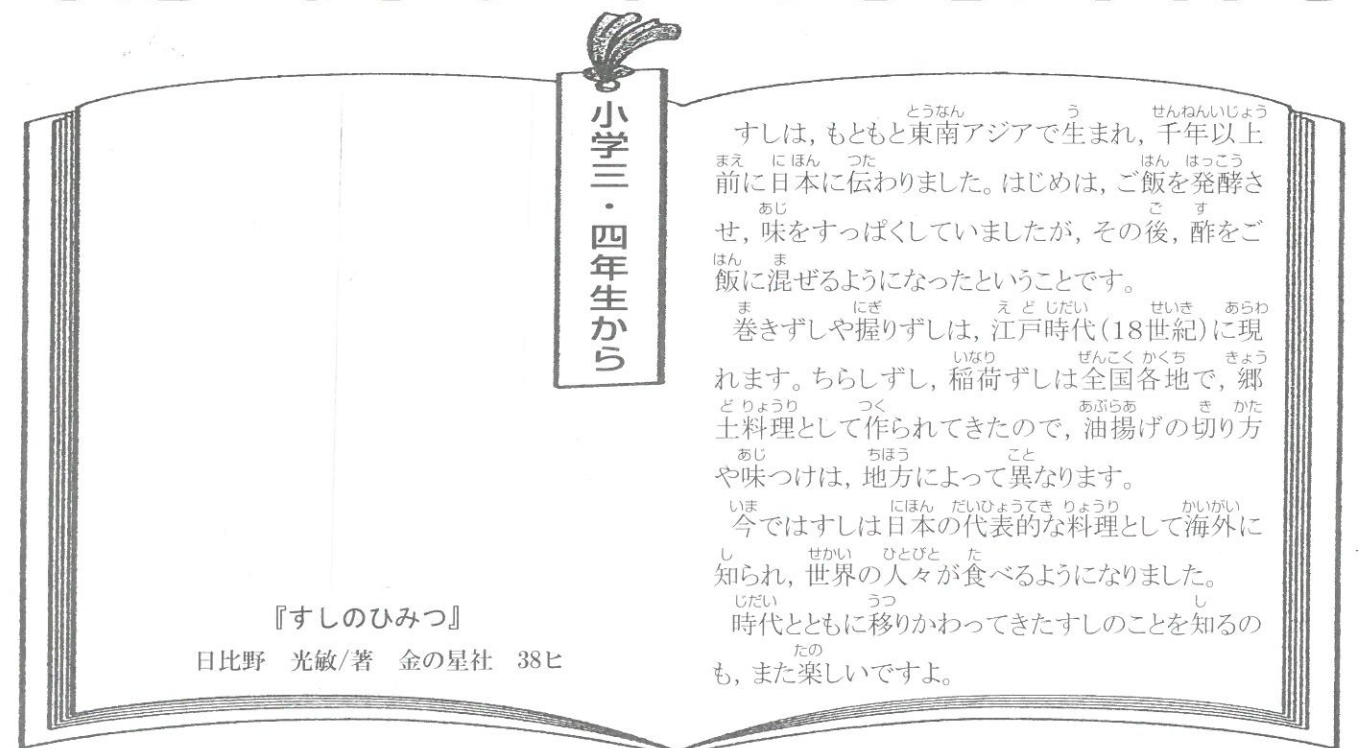 小学三・四年生から
『すしのひみつ』
日比野 光敏/著 金の星社 38ヒ
すしは,もともと東南アジアで生まれ,千年以上
前に日本に伝わりました。はじめは,ご飯を発酵さ
せ,味をすっぱくしていましたが,その後,酢をご
飯に混ぜるようになったということです。
巻きずしや握りずしは,江戸時代(18世紀)に現
れます。ちらしずし,稲荷ずしは全国各地で,郷
土料理として作られてきたので,油揚げの切り方
や味つけは,地方によって異なります。
今ではすしは日本の代表的な料理として海外に
知られ,世界の人々が食べるようになりました。
時代とともに移りかわってきたすしのことを知るの
も,また楽しいですよ。